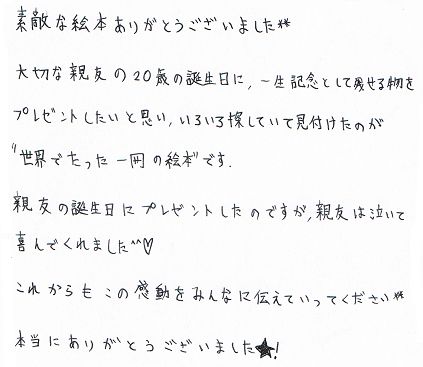 素敵な絵本ありがとうございました**
大切な親友の20歳の誕生日に、一生記念として残せる物を
プレゼントしたいと思い、いろいろ探していて見付けたのが
"世界でたった一冊の絵本"です.
親友の誕生日にプレゼントしたのですが、親友は泣いて
喜んでくれました^^♡
これからもこの感動をみんなに伝えていってください**
本当にありがとうございました★!